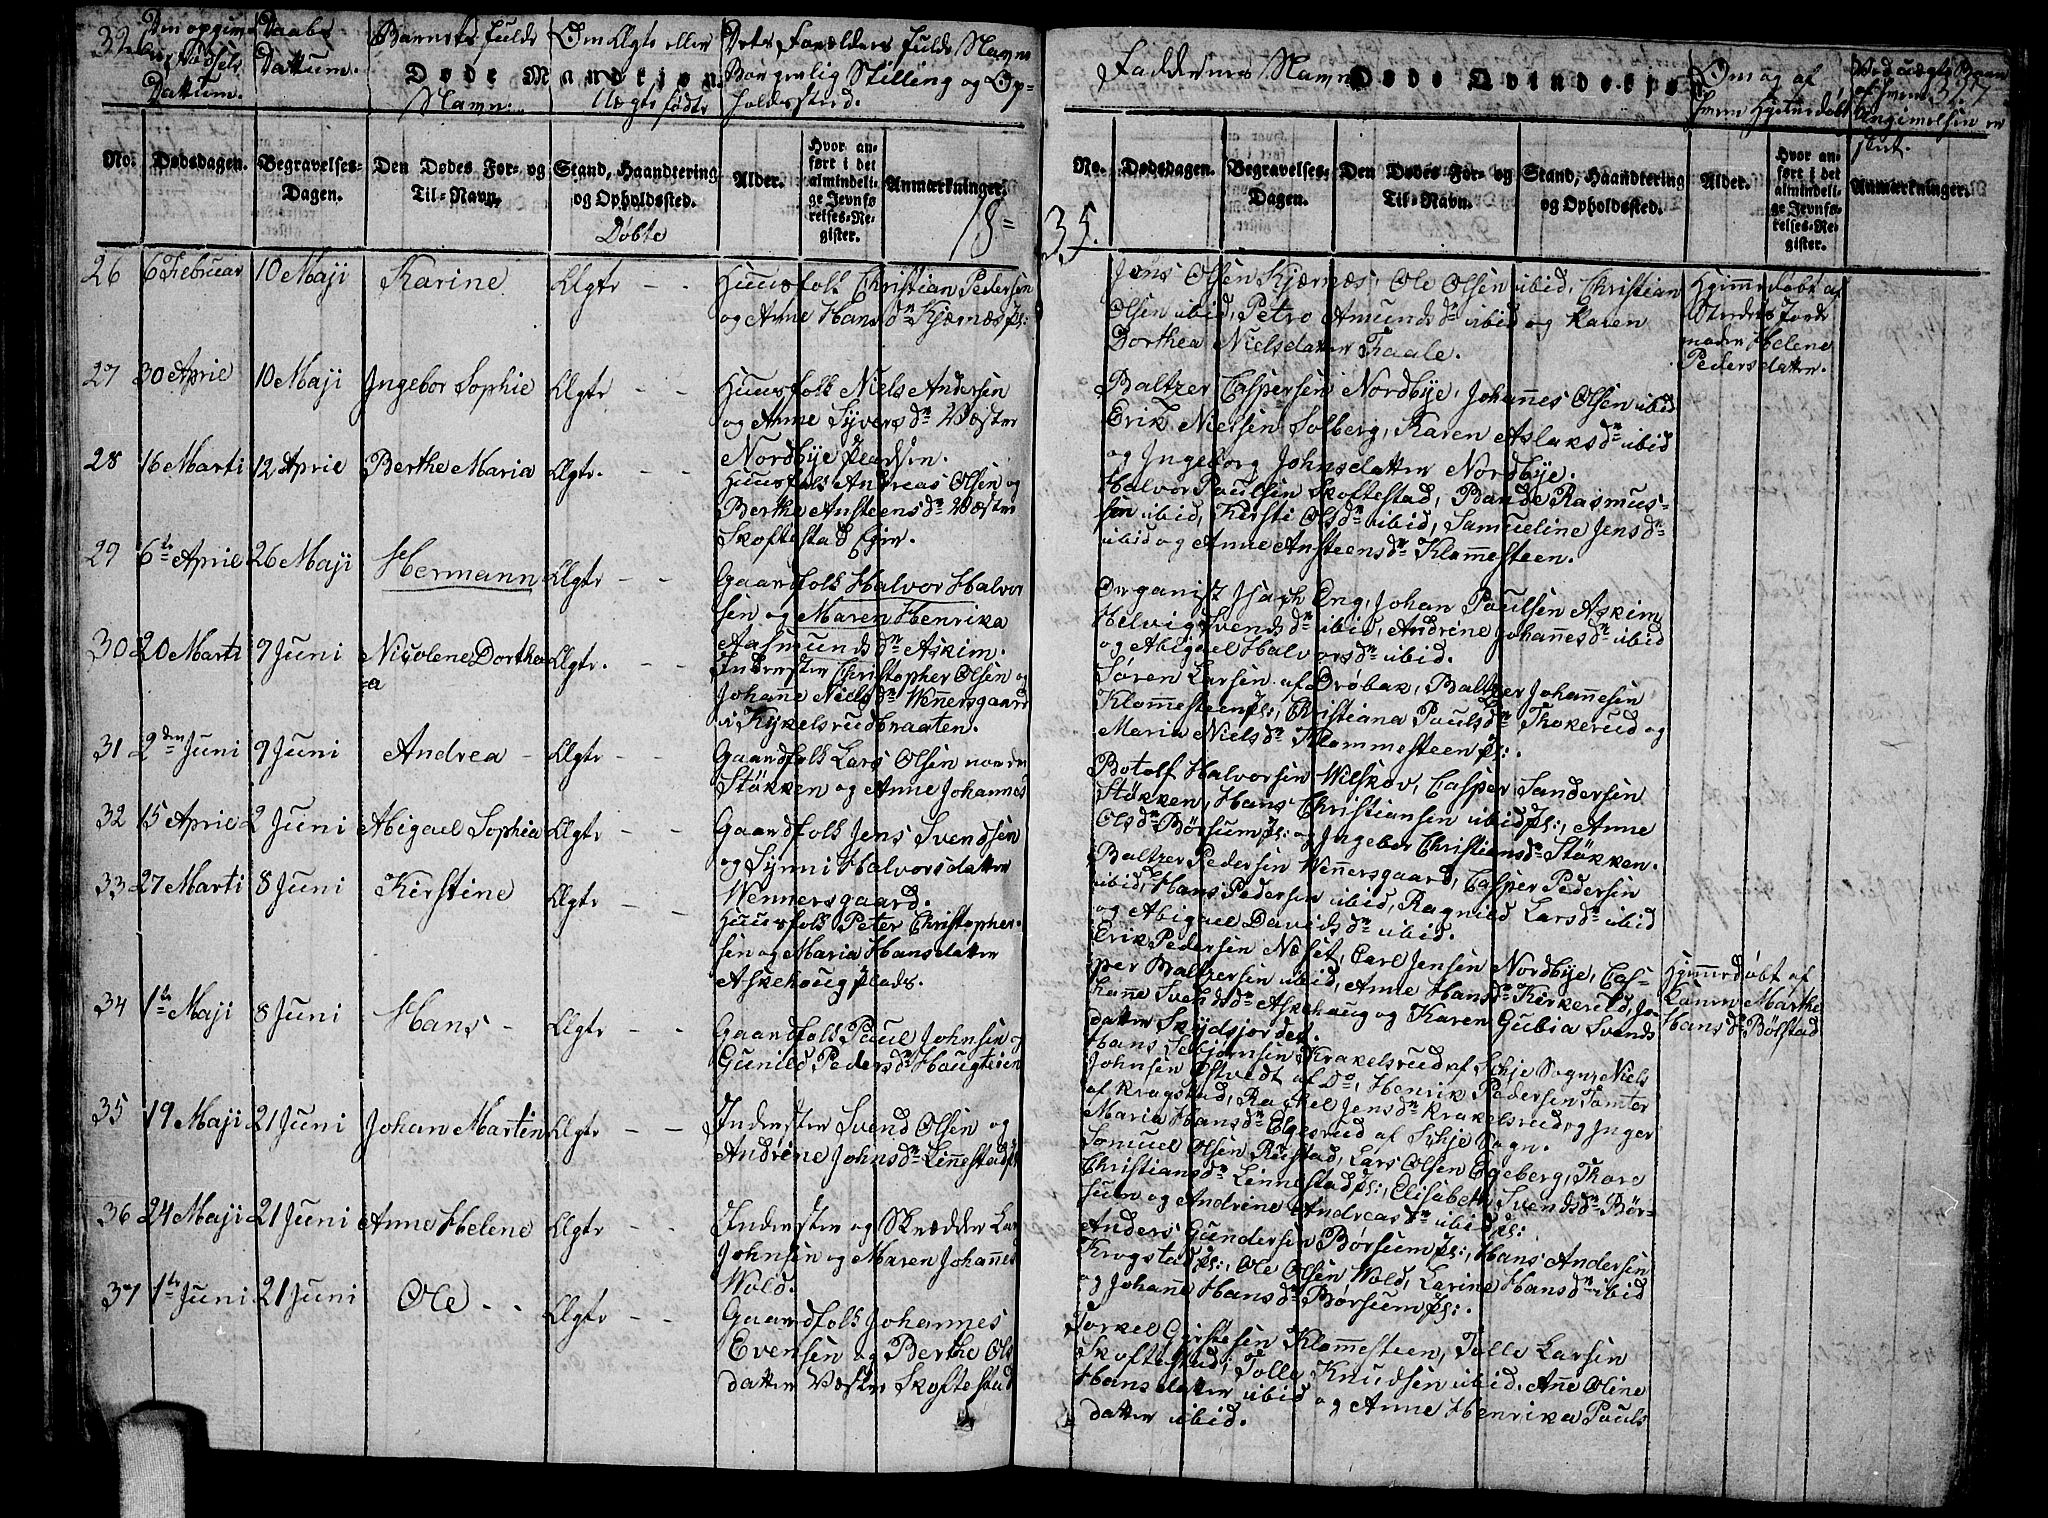 Den opgivne Daabs Barnets fulde Om Ægte eller Dets Forældres fulde Navne
og Fødsels Dattum. Navn: Uægte født Borgerlig Stilling og Op-
Dattum. holdssted.
Døde Mandkjøn.
No. Dødsdagen. Begravelses-Dagen. Den Dødes For- og Til-Navn. Stand, Haandtering og Opholdssted. Alder. Hvor anført i det almindelige Jevnførelses-Register. Anmærkninger.
Døbte 18=
26 6 Februar 10 Maji Karine Ægte - - Huusfolk Christian Pedersen
og Anne Hansdr Kjærnæs pl:
27 30 April 10 Maji Ingebor Sophie Ægte - - Huusfolk Niels Andersen
og Anne Syversdr Væster
Nordbye
28 16 Marti 12 April Berthe Maria Ægte. - - Huusfolk Andreas Olsen og
Berthe Ansteensdr Væster
Skoftestad Eier.
29 6te April 26 Maji Hermann Ægte - - Gaardfolk Halvor Halvor
sen og Maren Henrika
Aasmundsdr Askim.
30 20 Marti 7 Juni Nicolene Dorthe Ægte. - - Inderster Christopher Olsen og
=a Johanne Nielsdr Wennersgaard
i Kykelsrudbraaten.
31 2den Juni 9 Juni Andrea - Ægte - - Gaardfolk Lars Olsen nordre
Støkken og Anne Johannes
32 15 April 2 Juni Abigael Sophia Ægte - - Gaardfolk Jens Svendsen
og Synni Halvorsdatter
Wennersgaard.
33 27 Marti 8 Juni Kirstine Ægte - - Huusfolk Peter Christopher-
sen og Maria Hansdatter
Askehoug plads.
34 1te Maji 8 Juni Hans - Ægte - - Gaardfolk Paul Johnsen og
Gunild Pedersdr Haugteien
35 19 Maji 21 Juni Johan Martin Ægte - - Inderster Svend Olsen og
Andrine Johnsdr Linnestad pl
36 24 Maji 21 Juni Anne Helene Ægte - - Inderster og Skrædder Lars
Johnsen og Maren Johannes
Wold.
37 1te Juni 21 Juni Ole - - Ægte - - Gaardfolk Johannes
Evensen og Berthe Ols
datter Væstre Skoftestad
Faddernes Navne Om og af Ved uægte Børn
hvem Hjemmedøbt af hvem 327
Angivelsen er
skeet.
Døde Qvindekjøn.
No. Dødsdagen. Begravelses-Dagen. Den Dødes For- og Til-Navn. Stand, Haandtering og Opholdssted. Alder. Hvor anført i det almindelige Jevnførelses-Register. Anmærkninger.
35.
Jens Olsen Kjærnæs, Ole Olsen ibid, Christian Hjemmedøbt af
Olsen ibid, Petro Amundsdr ibid og Karen Stedets Jorde
Dorthea Nielsdatter Faale. moder Helene
Pedersdatter.
Baltzer Caspersen Nordbye, Johannes Olsen ibid
Erik Nielsen Solberg, Karen Aslaksdr ibid
og Ingeborg Johnsdatter Nordbye.
Halvor Paulsen Skoftestad, Bande Rasmus-
sen ibid, Kirsti Olsdr ibid, Samueline Jensdr
ibid og Anne Ansteensdr Klommesteen.
Organist Isach Eng, Johan Paulsen Askim
Helvig Svendsdr ibid, Andrine Johannesdr ibid
og Abigael Halvorsdr ibid.
Søren Larsen af Drøbak, Baltzer Johannesen
Klommesteen pl:, Christiana Paulsdr Thokerud og
Maria Nielsdr Klommesteen pl:.
Botolf Halvorsen Wilskov, Casper Sandersen
Støkken, Hans Christiansen ibid pl:, Anne
Olsdr Børsum pl: og Ingebor Christiansdr Støkken.
Baltzer Pedersen Wennersgaard, Casper Pedersen
ibid, Hans Pedersen ibid, Ragnild Larsdr ibid
og Abigael Davidsdr ibid.
Erik Pedersen Næset, Carl Jensen Nordbye, Cas- Hjemmedøbt af
per Baltzersen ibid, Anne Hansdr Kirkerud, Jo- Konen Marthe
hanne Svendsdr Askehoug og Karen Gubia Svends Hansdr Bølstad
datter Skydsjordet.
Hans Lebjørnsen Krakelsrud af Schje Sogn, Niels
Johnsen Østvedt af Do, Henrik Pedersen Tomter
af Kragstad, Rachel Jensdr Krakelsrud, og Inger
Maria Hansdr Egesrud af Schje Sogn.
Samuel Olsen Rustad, Lars Olsen Egeberg, Thore
Christiansdr Linnestad pl:, Elisabeth Svendsdr Bør-
sum og Andrine Andreasdr ibid pl:
Anders Gundersen Børsum pl:, Hans Andersen
Krogstad pl:, Ole Olsen Wold, Larine Hansdr ibid
og Johanne Hansdr Børsum pl:.
Torkel Klommesteen, Tolle Larsen
Skoftestad, Tolle Knudsen ibid, Anne Oline
Hansdatter ibid og Anne Henrika Pauls
datter ibid.